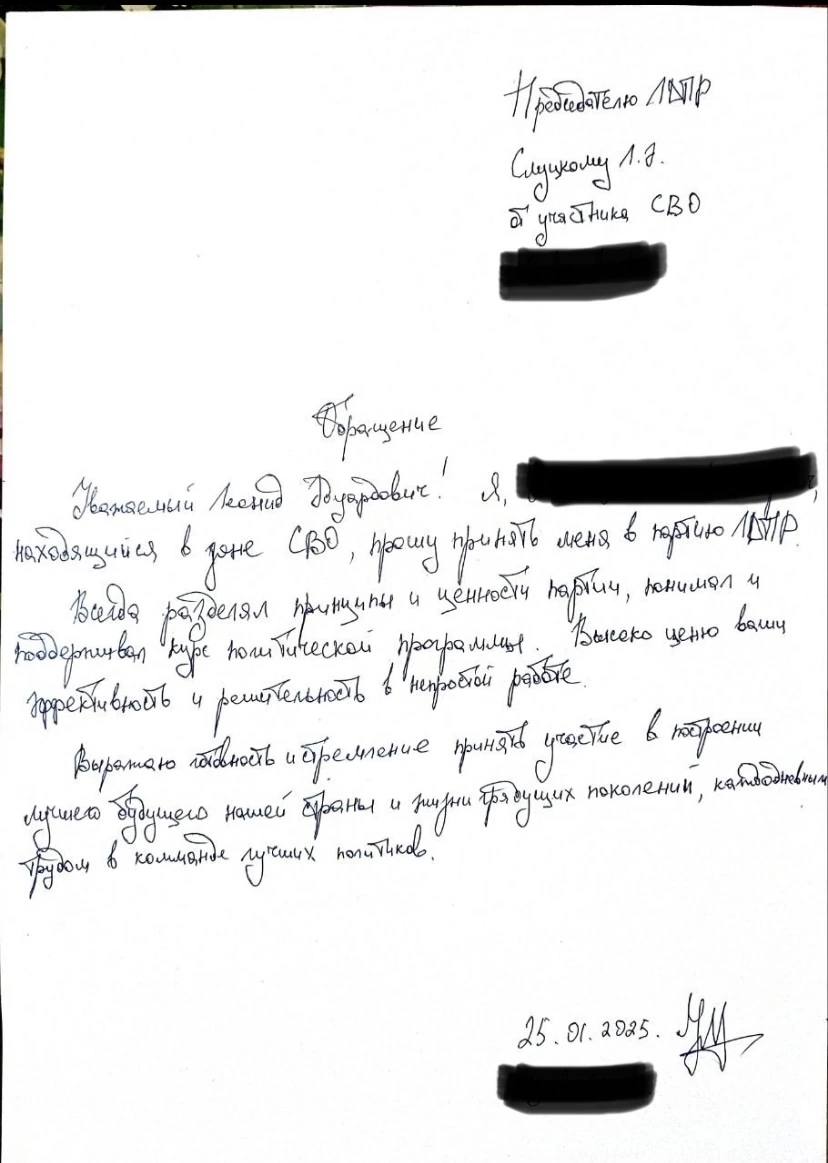 Председателю ЛДПР
Слуцкому Л.Э.
от участника СВО
Обращение
Уважаемый Леонид Эдуардович! Я,
находящийся в зоне СВО, прошу принять меня в партию ЛДПР.
Всегда разделял принципы и ценности партии, понимал и
поддерживал курс политической программы. Высоко ценю вашу
эффективность и решительность в непростой работе.
Выражаю готовность и стремление принять участие в построении
лучшего будущего нашей страны и жизни грядущих поколений, каждодневным
трудом в комманде лучших политиков.
25.01.2025.